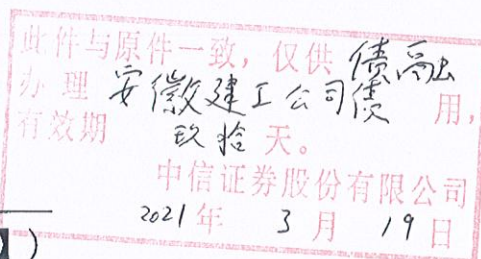 此件与原件一致，仅供 债融
办理 安徽建工公司债 用，
有效期 玖拾 天。
中信证券股份有限公司
2021年 3月 19日